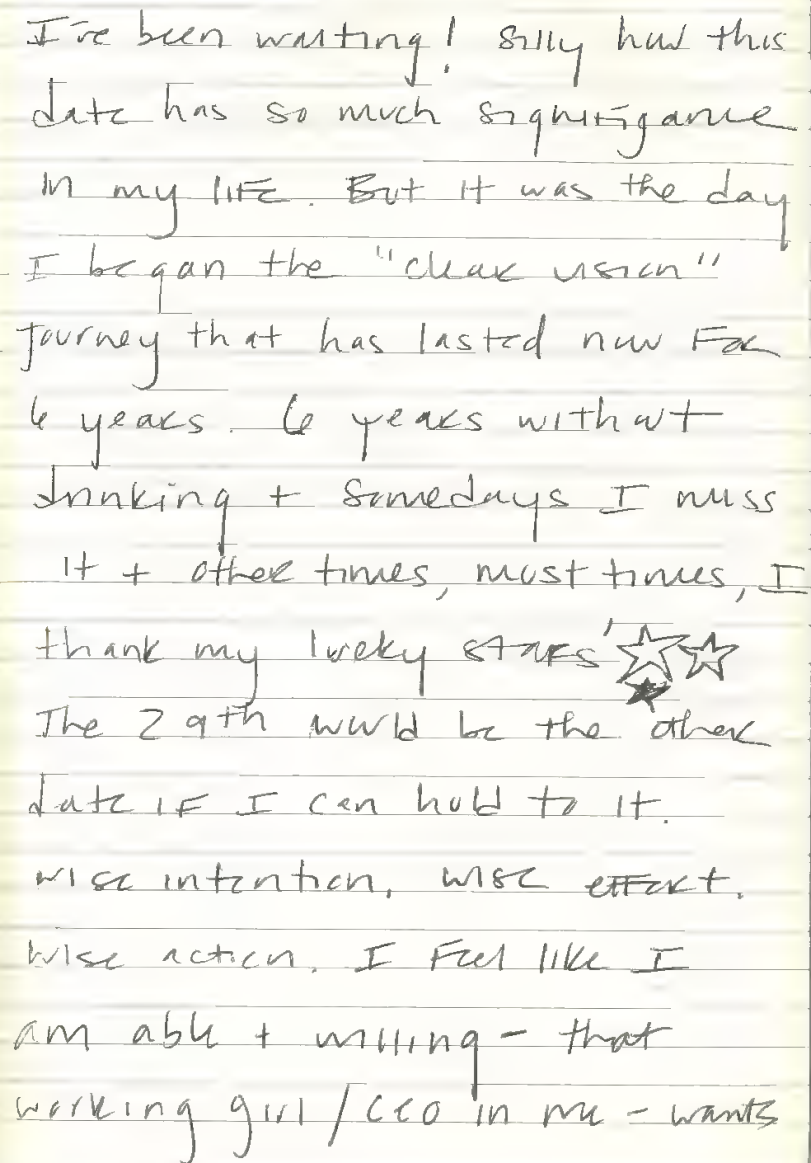 I've been waiting! Silly how this
date has so much signifigance
in my life. But it was the day
I began the "clear vision"
journey that has lasted now for
6 years. 6 years without
drinking + somedays I miss
it + other times, most times, I
thank my lucky stars'
The 29th would be the other
date if I can hold to it.
wise intention, wise effort.
Wise action. I feel like I
am able + willing - that
working girl / CEO in me - wants